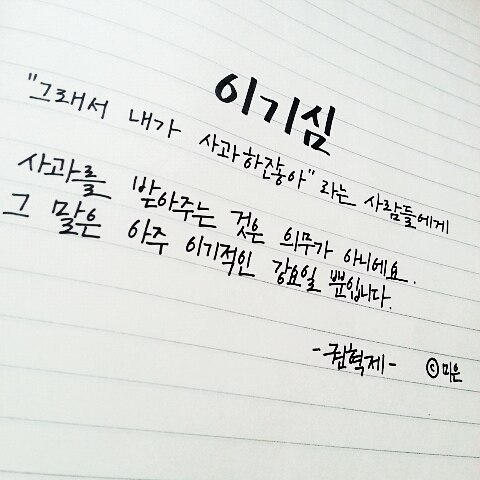 이기심
"그래서 내가 사과하잖아" 라는 사람들에게
사과를 받아주는 것은 의무가 아니에요.
그 말은 아주 이기적인 강요일 뿐입니다.
-권혁제-
ⓒ미운